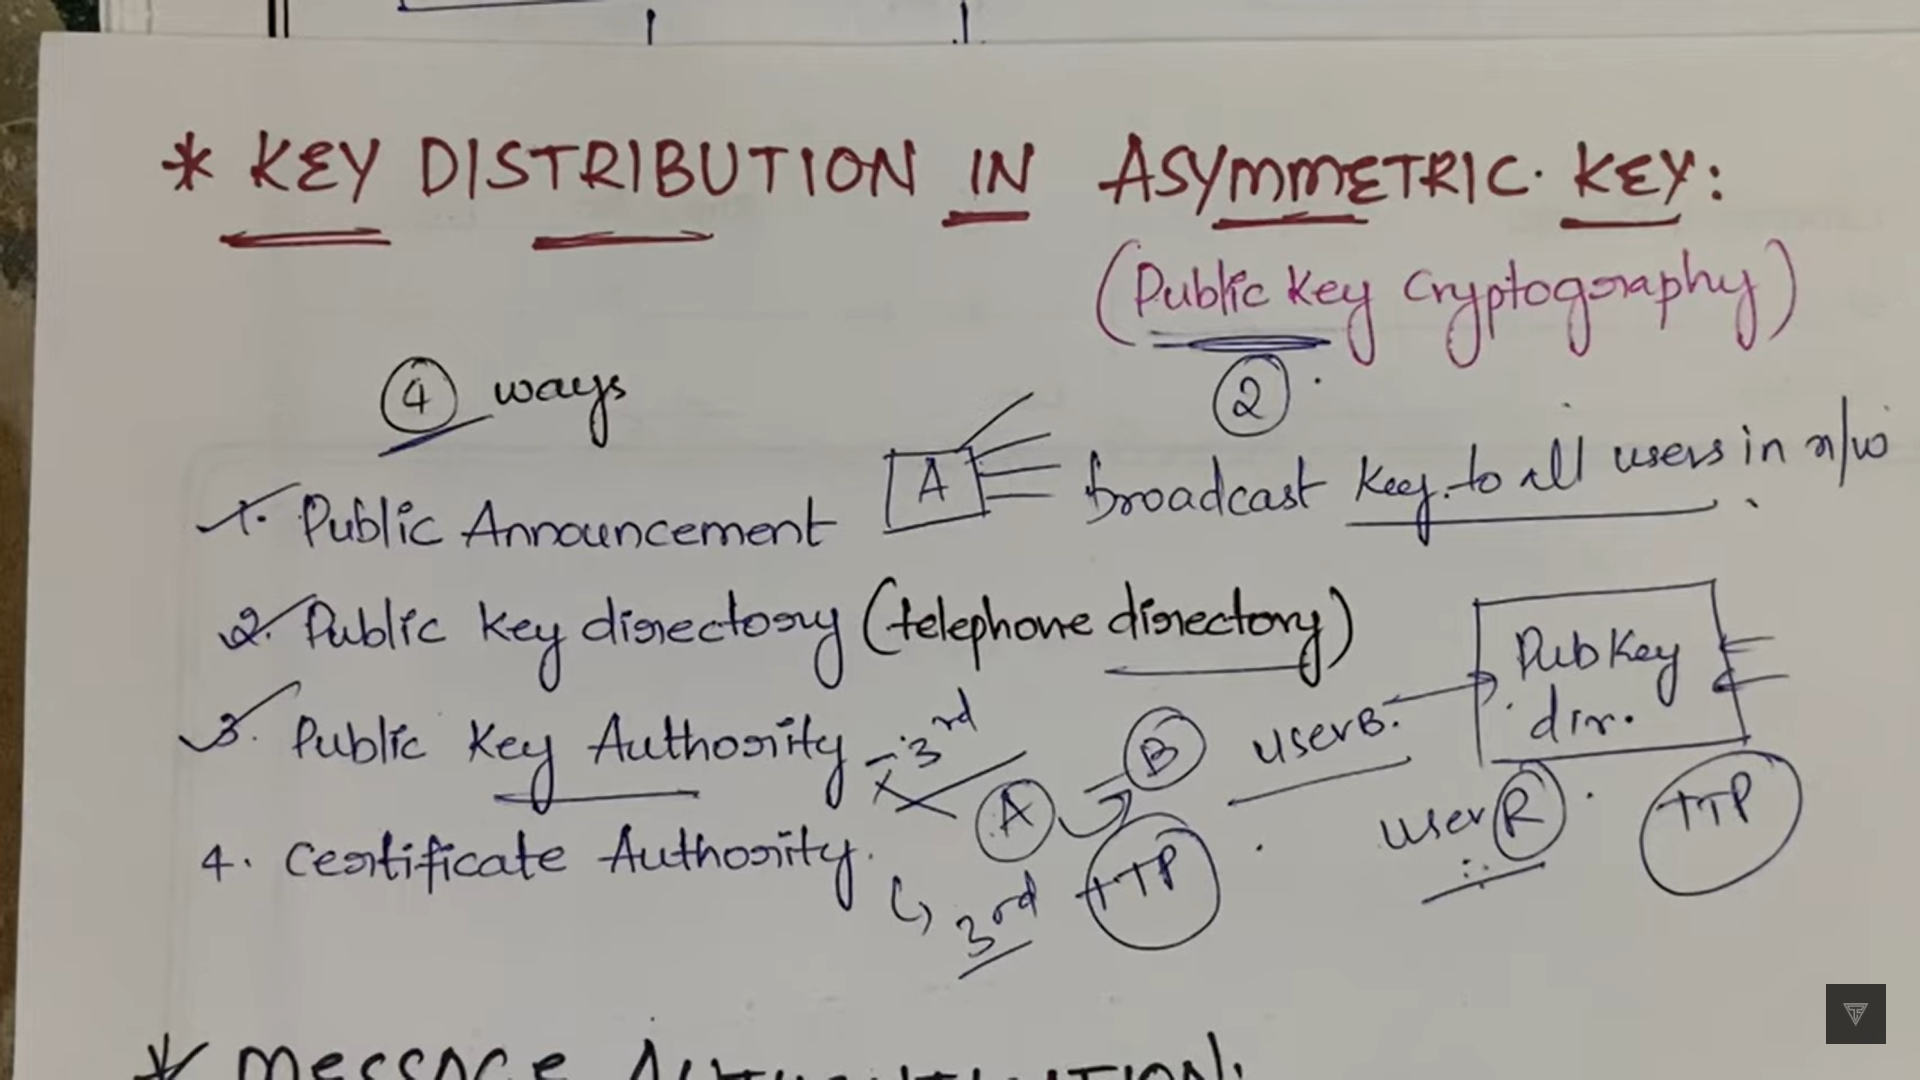 * KEY DISTRIBUTION IN ASYMMETRIC KEY:
(Public Key Cryptography)
4 ways
2
1. Public Announcement
A
broadcast key to all users in n/w
2. Public key directory (telephone directory)
Pub Key
dir.
3. Public Key Authority - 3rd
A
B
user B.
user R
TTP
4. Certificate Authority.
3rd
TTP
* MESSAGE AUTHENTICATION: